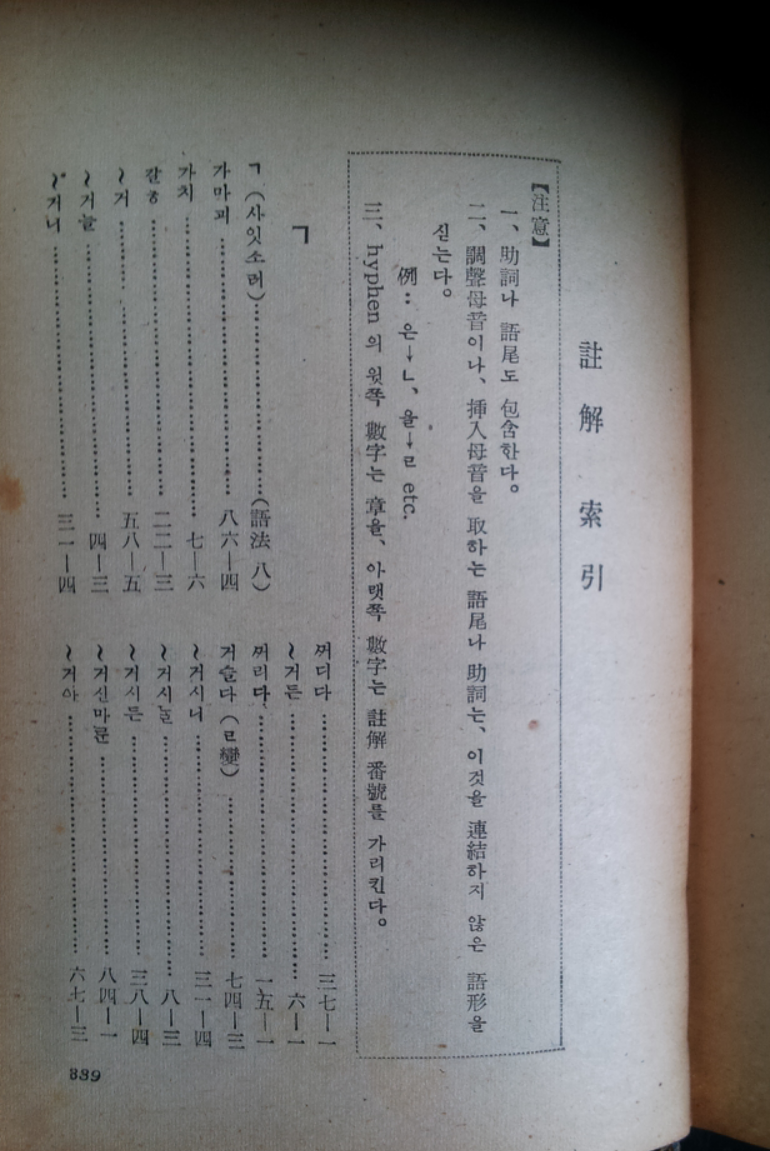 註解索引
【注意】
一、助詞나 語尾도 包含한다。
二、調聲母音이나、挿入母音을 取하는 語尾나 助詞는、이것을 連結하지 않은 語形을
싣는다。
例：은→ㄴ、을→ㄹ etc.
三、hyphen의 윗쪽 數字는 章을、아랫쪽 數字는 註解 番號를 가리킨다。
ㄱ
ㄱ(사잇소리)……………(語法 八)
가마괴……………八六—四
가치……………七—六
갈ㅎ……………二二—三
~거……………五八—五
~거늘……………四—三
~거니……………三一—四
ᄭᅥ디다……………三七—一
~거든……………六—一
ᄭᅥ리다……………一五—一
거슬다(ㄹ變)……………七四—三
~거시니……………三一—四
~거시ᄂᆞᆯ……………八—三
~거시든……………三八—四
~거신마ᄅᆞᆫ……………八四—一
~거아……………六七—三
339